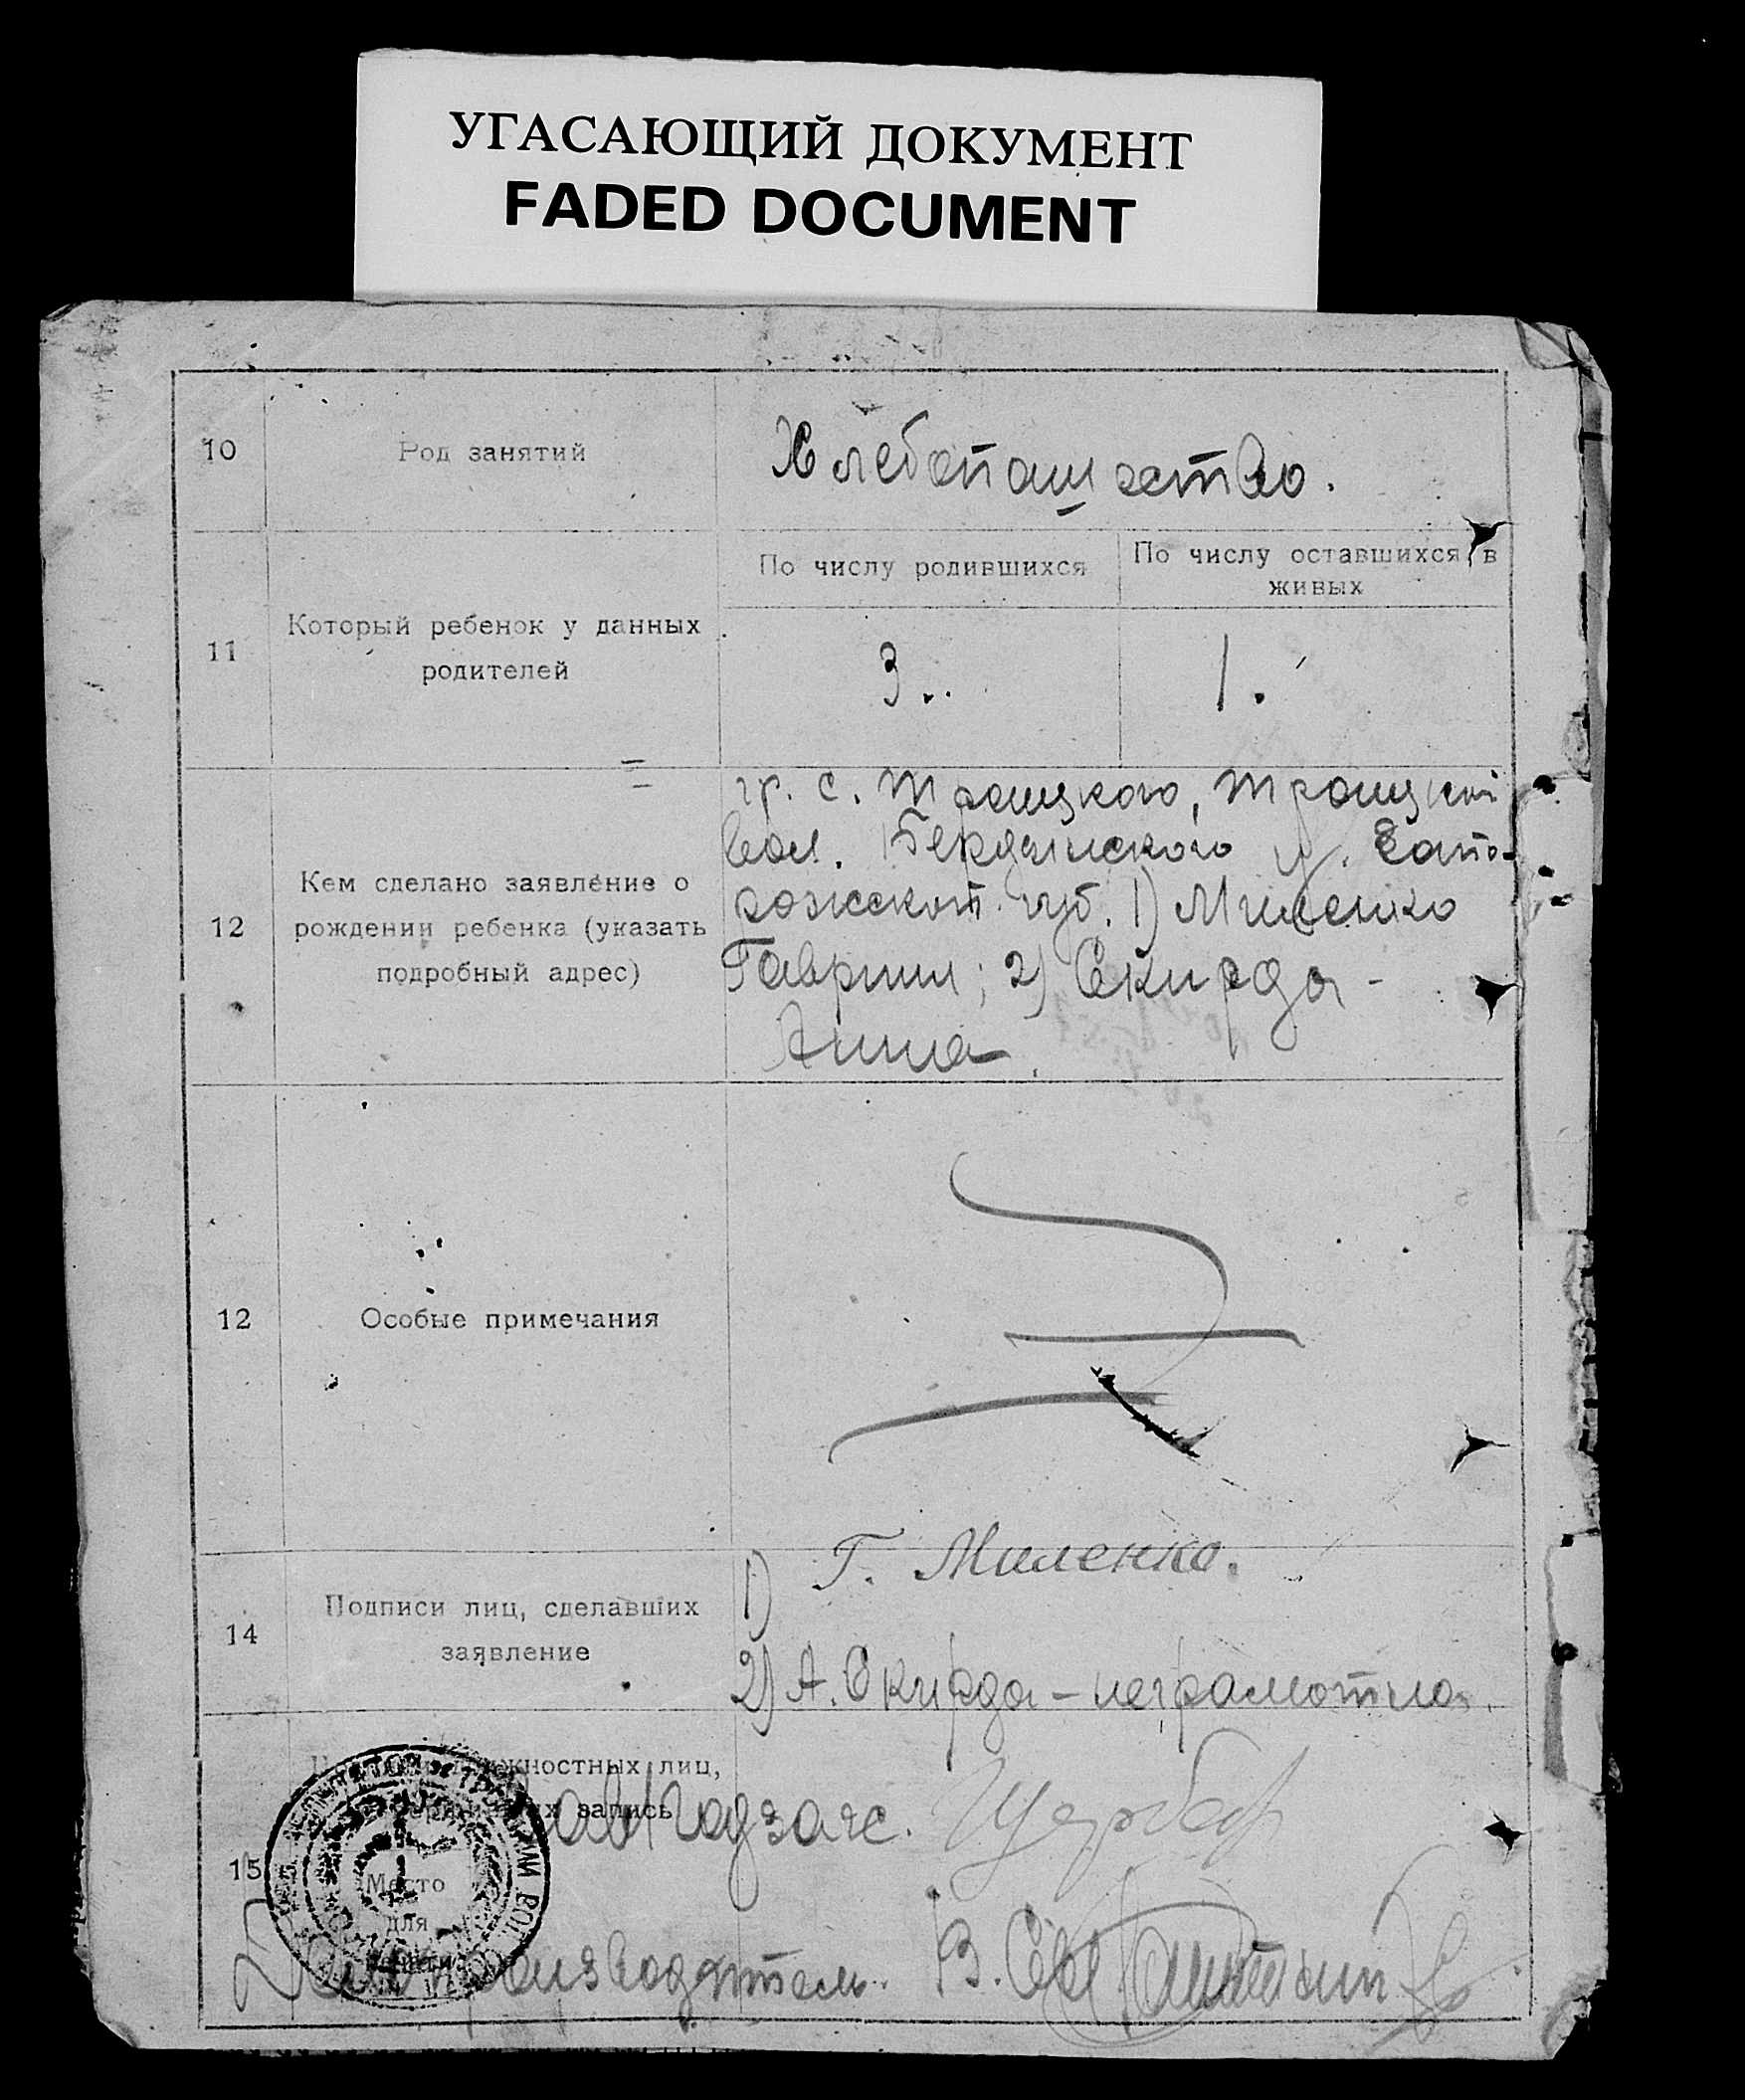 УГАСАЮЩИЙ ДОКУМЕНТ
FADED DOCUMENT
10
Род занятий
Хлебопашество.
11
Который ребенок у данных
родителей
По числу родившихся
По числу оставшихся в
живых
3..
1.
12
Кем сделано заявление о
рождении ребенка (указать
подробный адрес)
гр. с. Троицкого, Троицкой
вол. Бердянского у. Запо-
рожской губ. 1) Миленко
Гавриил; 2) Скирда -
Анна
12
Особые примечания
14
Подписи лиц, сделавших
заявление
1) Г. Миленко.
2) А. Скирда - неграмотна.
15
должностных лиц,
запись
Место
для
печати
Завподзагс. Щербак
Делопроизводитель. В.